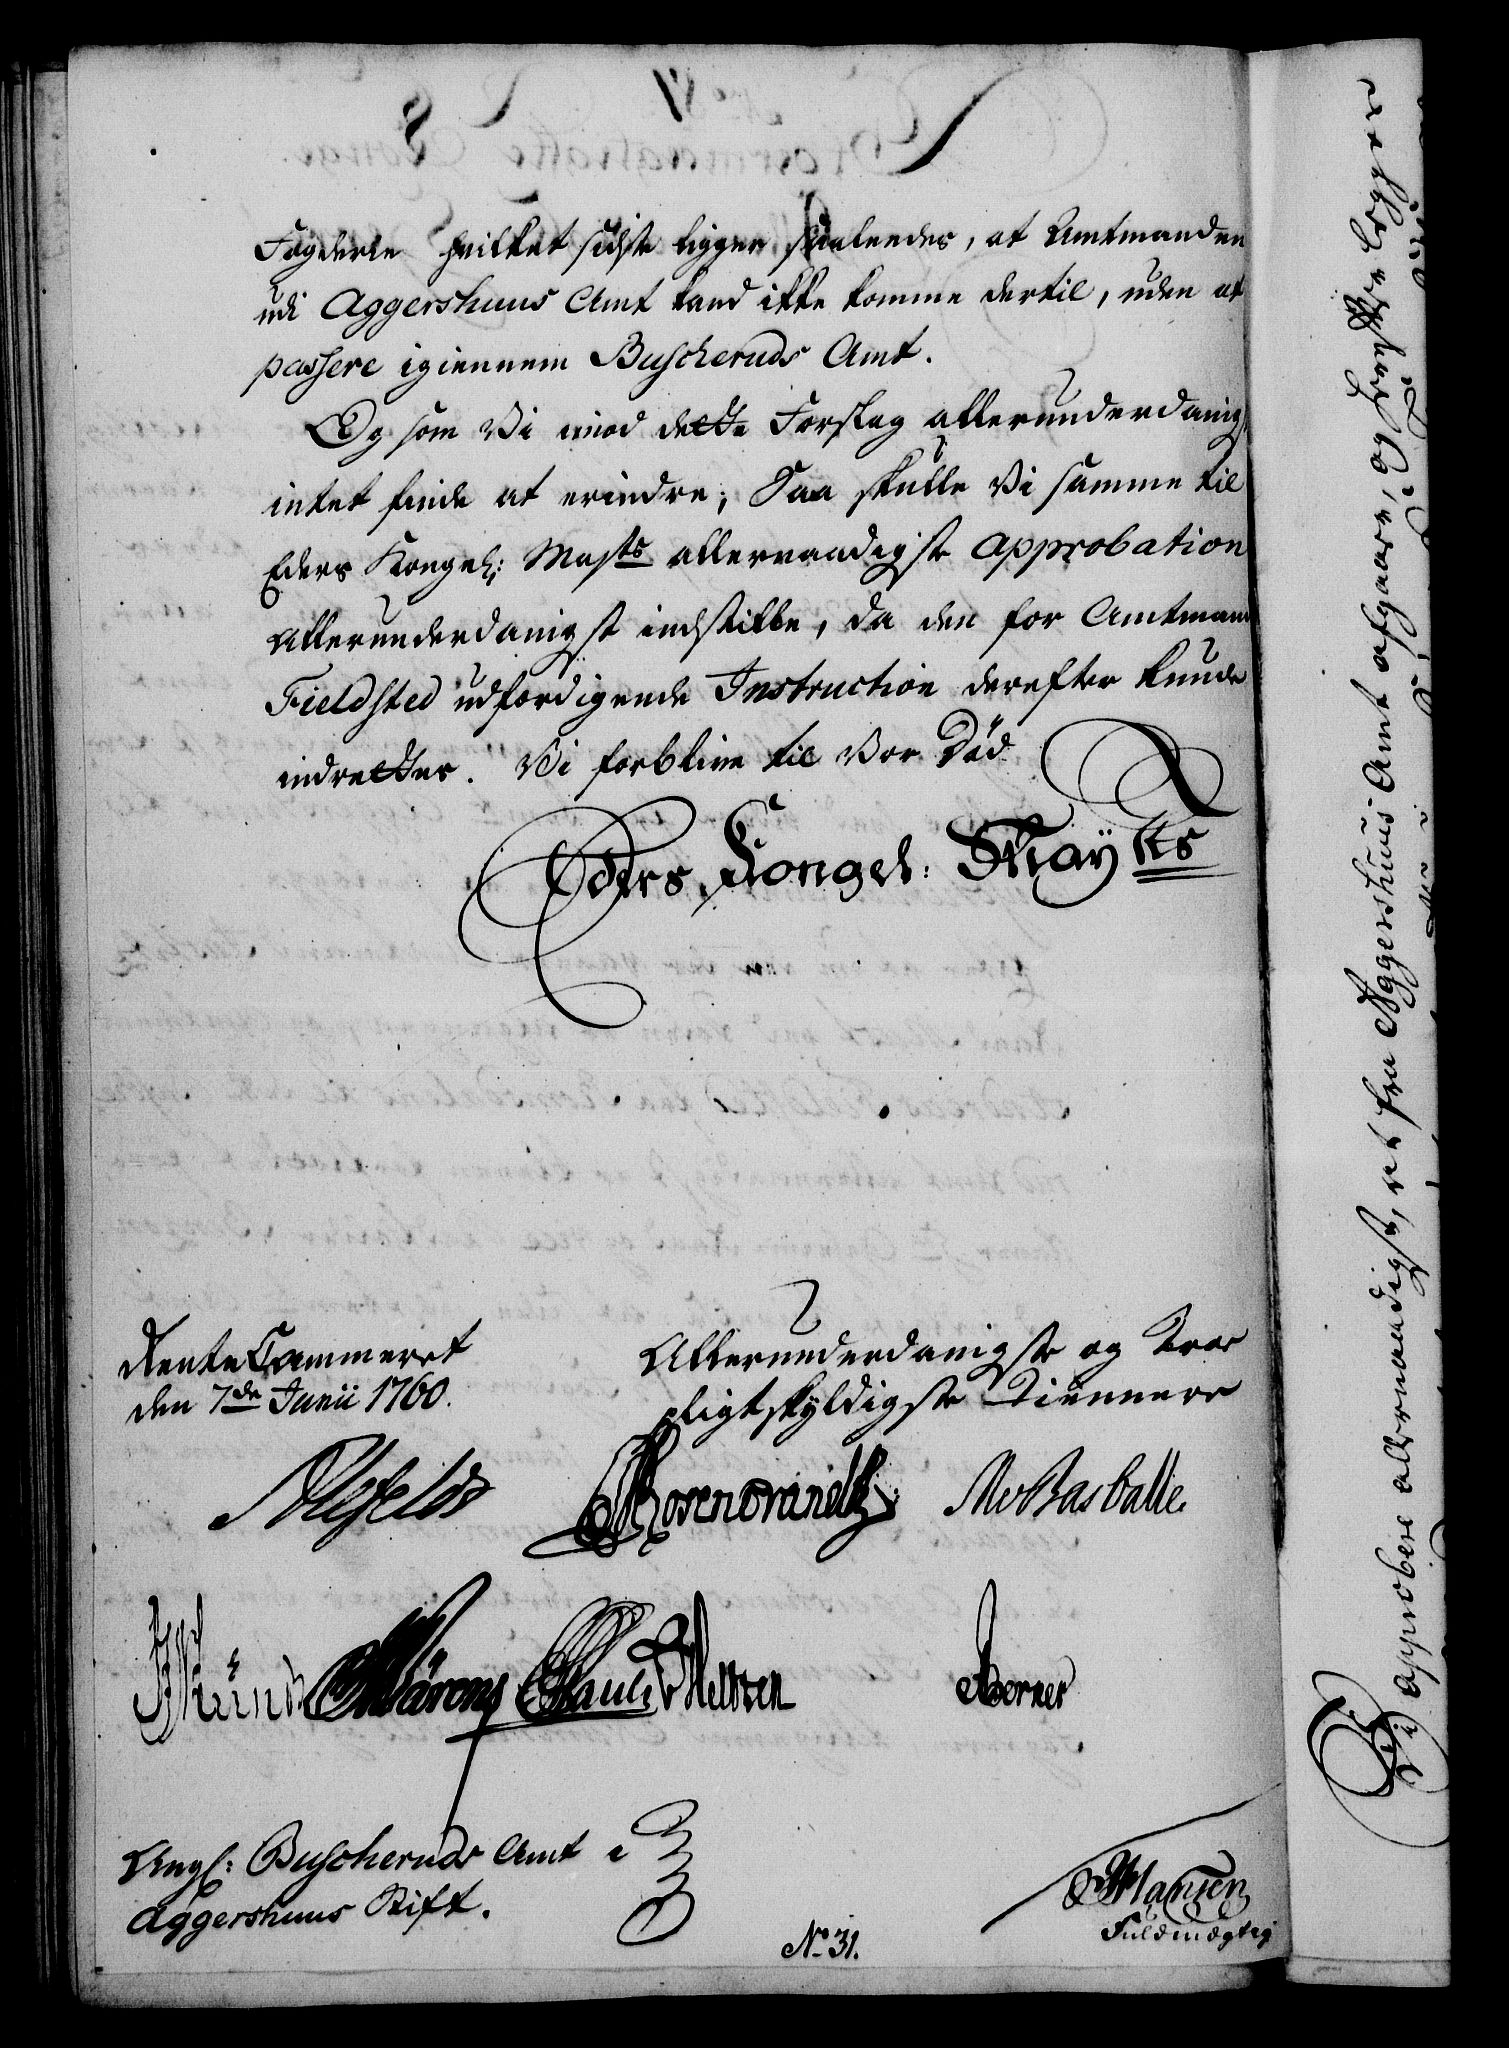 Fogderie hvilket sidste ligger saaledes, at Amtmanden
udi Aggershuus Amt kand ikke komme dertil, uden at
passere igiennem Buscheruds Amt.
Og som Vi imod dette Forslag allerunderdanigst
intet finde at erindre; Saa skulle Vi samme til
Eders Kongel: Mayts allernaadigste Approbation
allerunderdanigst indstille, da den for Amtmand
Fieldsted udfærdigende Instruction derefter kunde
indrettes. Vi forblive til Vor Död
Eders Kongel: Mayts
RenteCammeret
den 7de Junii 1760.
Allerunderdanigste og Troe
pligtskyldigste Tienere
Ahlefeldt
Rosencrandtz
MvBasballe.
Holtzen
Berner
Ang: Buscheruds Amt i
Aggershuus Stift.
Hansen
Fuldmægtig
No 31.
Vi approbere allernaadigst, at fra Aggershuus Amt afgaaer, og legges